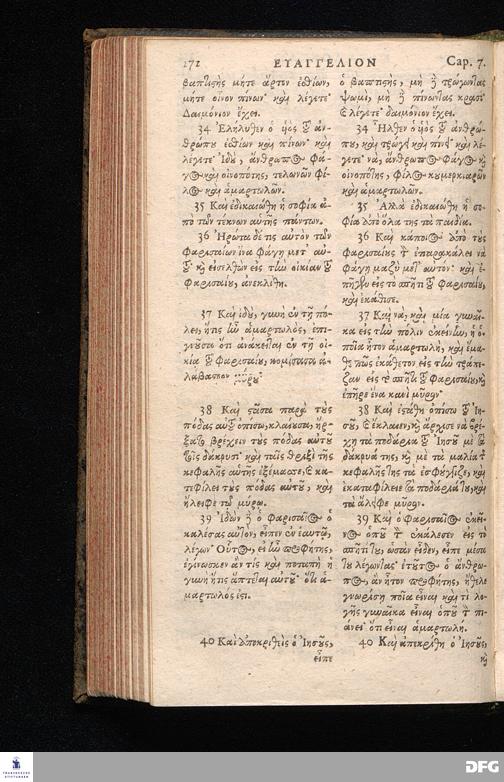 272 ΕΥΑΓΓΕΛΙΟΝ Cap. 7.
βαπτιςὴς μήτε ἄρτον ἐσθίων,
μήτε οἶνον πίνων· καὶ λέγετε·
Δαιμόνιον ἔχει.
34 Ἐλήλυθεν ὁ υἱὸς τοῦ ἀν-
θρώπου ἐσθίων καὶ πίνων· καὶ
λέγετε· Ἰδοὺ, ἄνθρωπος φά-
γος καὶ οἰνοπότης, τελωνῶν φί-
λος καὶ ἁμαρτωλῶν.
35 Καὶ ἐδικαιώθη ἡ σοφία ἀ-
πὸ τῶν τέκνων αὑτῆς πάντων.
36 Ἠρώτα δέ τις αὐτὸν τῶν
Φαρισαίων ἵνα φάγῃ μετ' αὐ-
τοῦ· καὶ εἰσελθὼν εἰς τὴν οἰκίαν τοῦ
Φαρισαίου, ἀνεκλίθη.
37 Καὶ ἰδοὺ, γυνὴ ἐν τῇ πό-
λει, ἥτις ἦν ἁμαρτωλὸς, ἐπι-
γνοῦσα ὅτι ἀνάκειται ἐν τῇ οἰ-
κίᾳ τοῦ Φαρισαίου, κομίσασα ἀ-
λάβαςρον μύρου·
38 Καὶ ςᾶσα παρὰ τοὺς
πόδας αὐτοῦ ὀπίσω, κλαίουσα, ἤρ-
ξατο βρέχειν τοὺς πόδας αὐτοῦ
τοῖς δάκρυσι· καὶ ταῖς θριξὶ τῆς
κεφαλῆς αὑτῆς ἐξέμασσε, καὶ κα-
τεφίλει τοὺς πόδας αὐτοῦ, καὶ
ἤλειφε τῷ μύρῳ.
39 Ἰδὼν δὲ ὁ Φαρισαῖος ὁ
καλέσας αὐτὸν, εἶπεν ἐν ἑαυτῷ,
λέγων· Οὗτος, εἰ ἦν προφήτης,
ἐγίνωσκεν ἂν τίς καὶ ποταπὴ ἡ
γυνὴ ἥτις ἅπτεται αὐτοῦ· ὅτι ἁ-
μαρτωλός ἐςι.
40 Καὶ ἀποκριθεὶς ὁ Ἰησοῦς,
εἶπε
ὁ βαπτιςὴς, μὴ δὲ τρώγωντας
ψωμὶ, μὴ δὲ πίνωντας κρασί·
καὶ λέγετε· δαιμόνιον ἔχει.
34 Ἦλθεν ὁ υἱὸς τοῦ ἀνθρώ-
που, καὶ τρώγει καὶ πίνει· καὶ λέ-
γετε· νὰ, ἄνθρωπος φάγος καὶ
οἰνοπότης, φίλος κυμερκιαρῶν
καὶ ἁμαρτωλῶν.
35 Ἀλλὰ ἐδικαιώθη ἡ σο-
φία ἀπὸ ὅλα της τὰ παιδία.
36 Καὶ κάποιος ἀπὸ τοὺς
Φαρισαίους τὸν ἐπαρακάλει νὰ
φάγῃ μαζὺ μετ' αὐτόν· καὶ ἐ-
πῆγεν εἰς τὸ σπῆτι τοῦ Φαρισαίου,
καὶ ἐκάθισε.
37 Καὶ νὰ, καὶ μία γυναῖ-
κα εἰς τὴν πόλιν ἐκείνην, ἡ ὁ-
ποῖα ἦτον ἁμαρτωλὴ, καὶ ἔμα-
θε πῶς ἐκάθετον εἰς τὴν τράπε-
ζαν εἰς τὸ σπῆτι τοῦ Φαρισαίου, καὶ
ἐπῆρε ἕνα κανὶ μύρον·
38 Καὶ ἐςάθη ὀπίσω τοῦ Ἰη-
σοῦ, καὶ ἔκλαιεν, καὶ ἄρχισε νὰ βρέ-
χῃ τὰ ποδάρια τοῦ Ἰησοῦ μὲ τὰ
δάκρυά της, καὶ μὲ τὰ μαλία τῆς
κεφαλῆς της τὰ ἐσφούγγιζε, καὶ
ἐκαταφίλειε τὰ ποδάρια του, καὶ
τὰ ἄλειφε μύρον.
39 Καὶ ὁ Φαρισαῖος ἐκεῖ-
νος ὁποῦ τὸν ἐκάλεσεν εἰς τὸ
σπῆτί του, ὡσὰν εἶδεν, εἶπε μέσα
του λέγωντας· ἐτοῦτος ὁ ἄνθρω-
πος, ἂν ἦτον προφήτης, ἤθελε
γνωρίση ποῖα εἶναι καὶ τί λο-
γῆς γυναῖκα εἶναι ὁποῦ τὸν πι-
άνει· ὅτι εἶναι ἁμαρτωλή.
40 Καὶ ἀπεκρίθη ὁ Ἰησοῦς,
καὶ
FRANCKESCHE
STIFTUNGEN
DFG